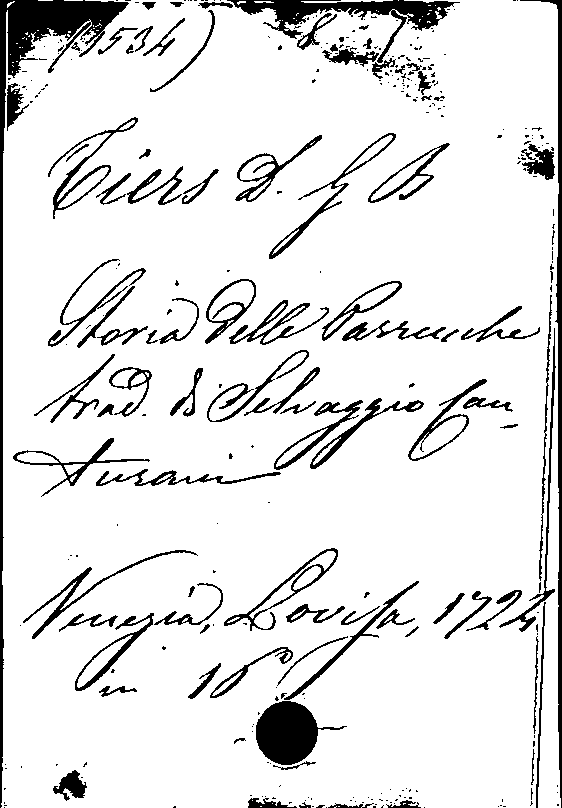 (1534) 8 7
Tiers D. G B
Storia delle Parrucche
trad. di Selvaggio Can-
turani
Venezia, Lovisa, 1724
in 16°